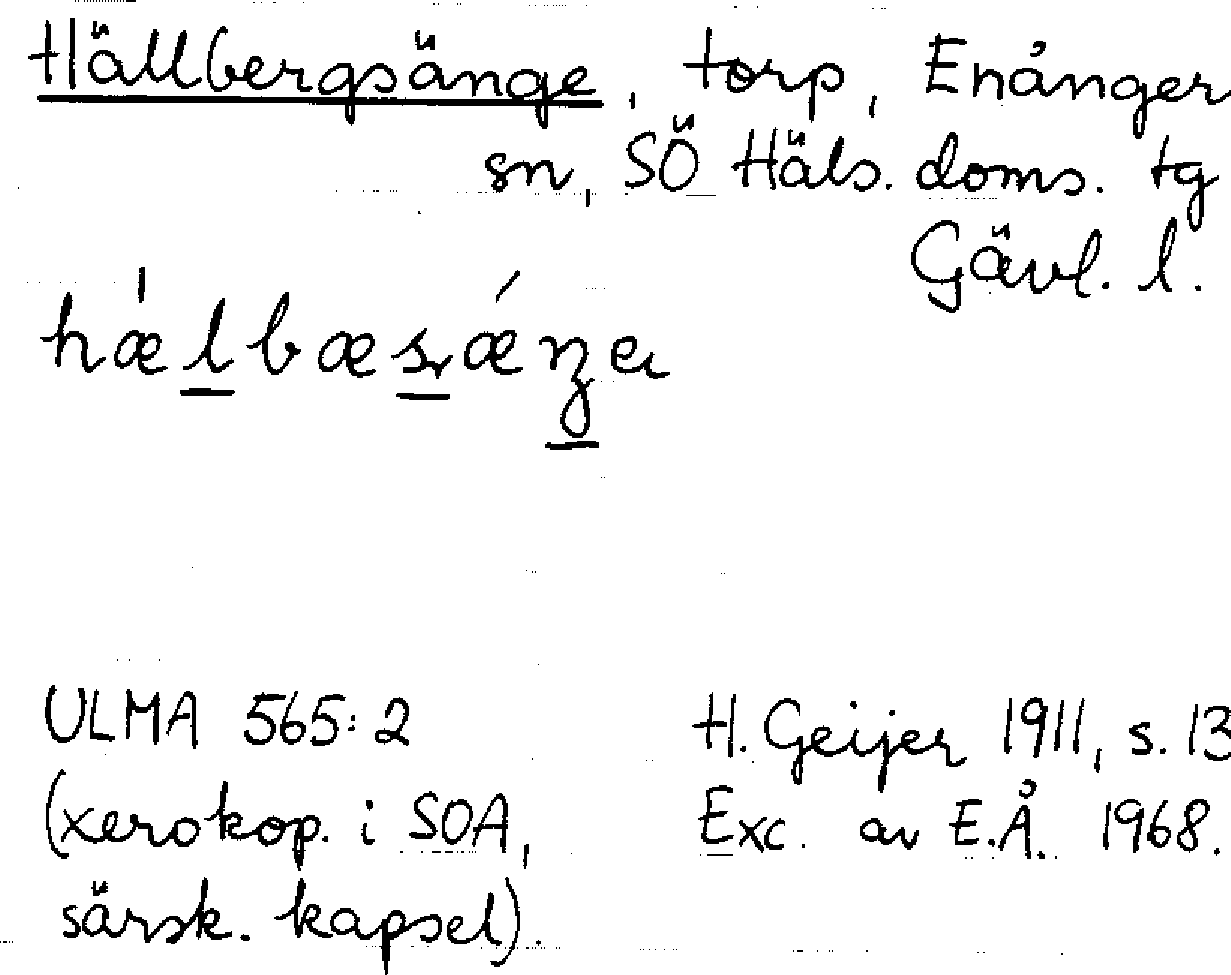 Hällbergsänge, torp, Enånger
sn, SÖ Häls. doms. tg
Gävl. l.
hælbæsæŋa
ULMA 565:2
(xerokop. i SOA,
särsk. kapsel).
H. Geijer 1911, s. 13
Exc. av E.Å. 1968.